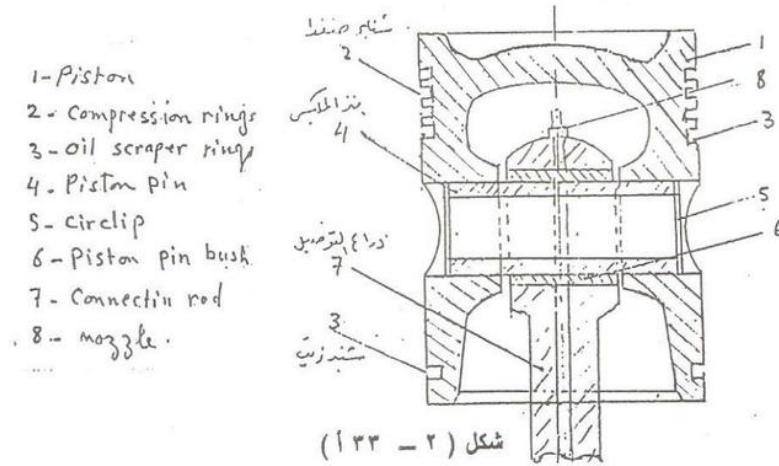 1-Piston
2- Compression rings
3- oil scraper rings
4- Piston pin
5- circlip
6- Piston pin bush
7- Connectin rod
8- nozzle.
2
4
ذراع التوصيل
7
3
1
8
3
5
6
شكل (٢ - ٣٣ أ)